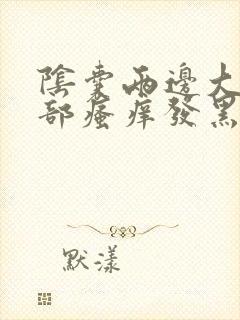 陰囊兩邊大
部瘙癢發黑
默漾